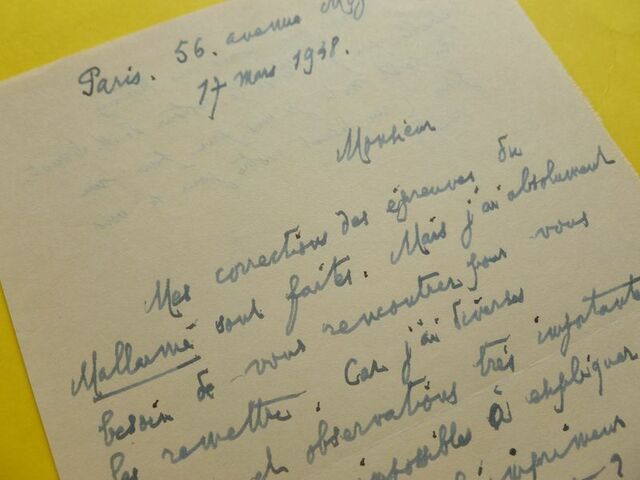 Paris. 56. avenue
17 mars 1938.
Monsieur
Mes corrections des épreuves du
Mallarmé sont faites. Mais j'ai absolument
besoin de vous rencontrer pour vous
les remettre. Car j'ai diverses
observations très importantes
impossibles à expliquer
imprimeur
?